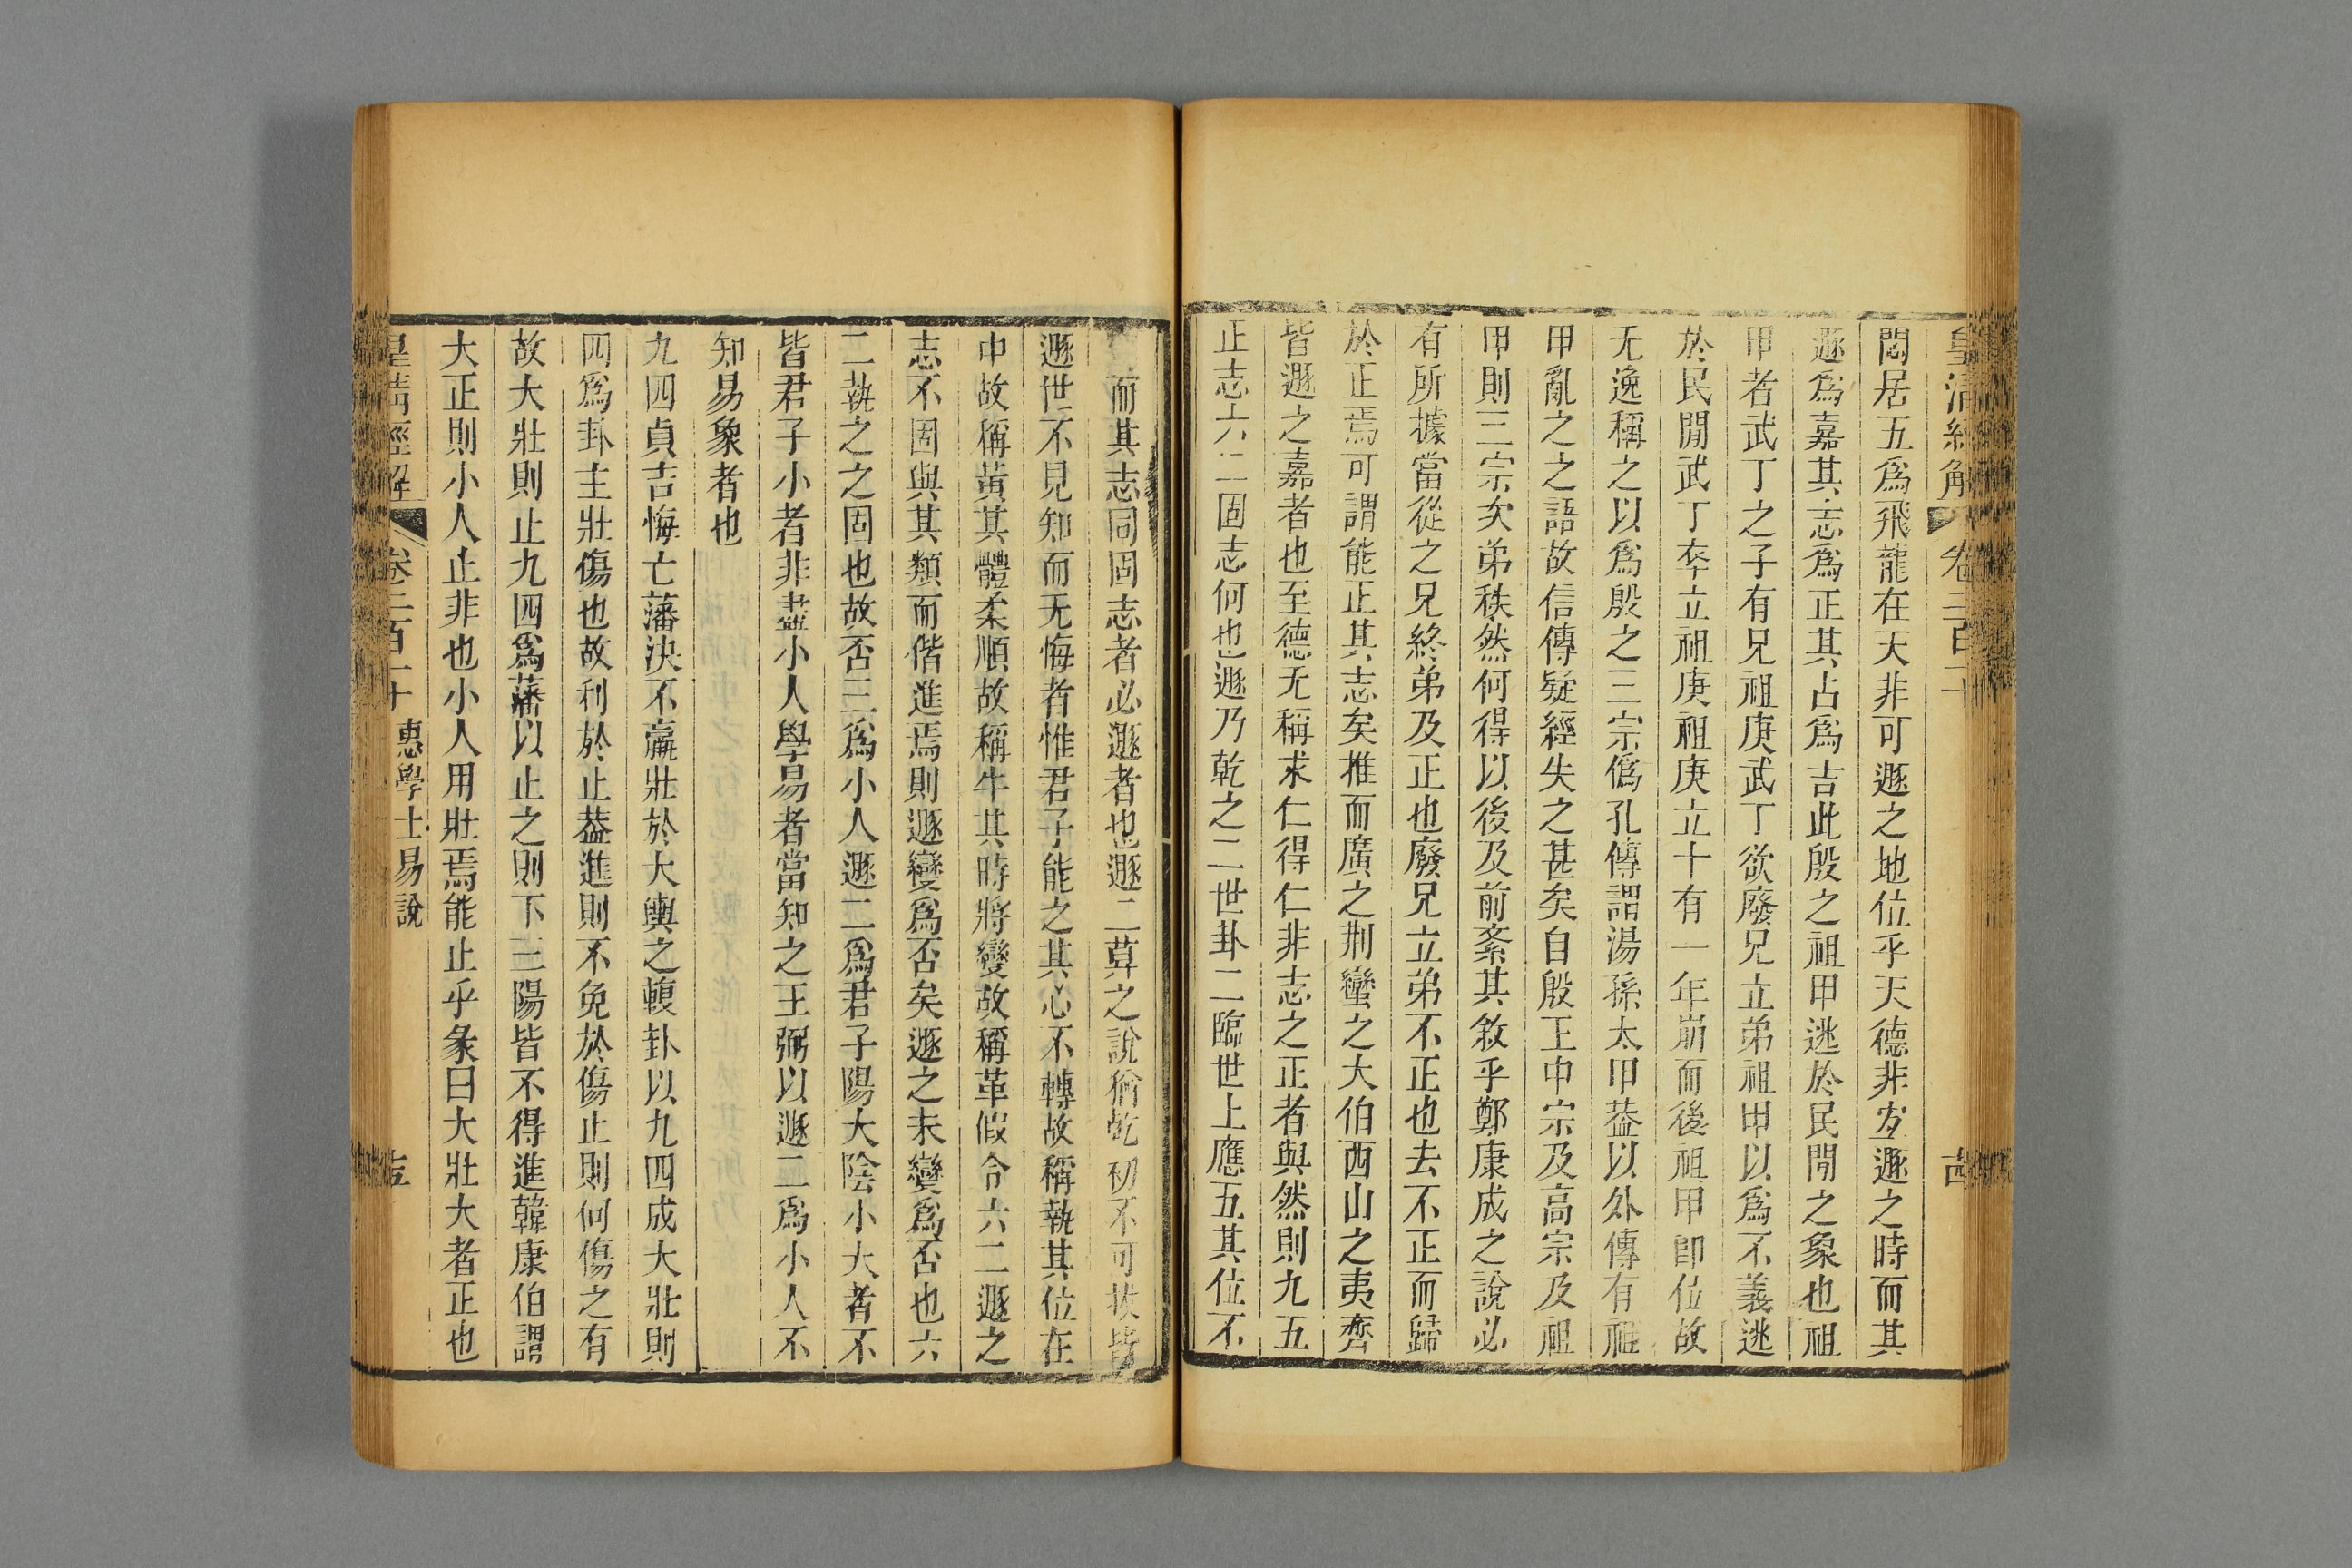 皇清經解 卷二百十 古
悶居五爲飛龍在天非可遯之地位乎天德非宐遯之時而其
遯爲嘉其志爲正其占爲吉此殷之祖甲逃於民閒之象也祖
甲者武丁之子有兄祖庚武丁欲廢兄立弟祖甲以爲不義逃
於民閒武丁卒立祖庚祖庚立十有一年崩而後祖甲卽位故
无逸稱之以爲殷之三宗僞孔傳謂湯孫太甲葢以外傳有祖
甲亂之之語故信傳疑經失之甚矣自殷王中宗及高宗及祖
甲則三宗矣弟秩然何得以後及前紊其敘乎鄭康成之說必
有所據當從之兄終弟及正也廢兄立弟不正也去不正而歸
於正焉可謂能正其志矣推而廣之荆蠻之大伯西山之夷齊
皆遯之嘉者也至德无稱求仁得仁非志之正者與然則九五
正志六二固志何也遯乃乾之二世卦二臨世上應五其位不
而其志同固志者必遯者也遯二莫之說猶乾初不可拔皆
遯世不見知而无悔者惟君子能之其心不轉故稱執其位在
中故稱黃其體柔順故稱牛其時將變故稱革假令六二遯之
志不固與其類而偕進焉則遯變爲否矣遯之未變爲否也六
二執之之固也故否三爲小人遯二爲君子陽大陰小大者不
皆君子小者非盡小人學易者當知之王弼以遯二爲小人不
知易象者也
九四貞吉悔亡藩決不羸壯於大輿之輹卦以九四成大壯則
四爲卦主壯傷也故利於止葢進則不免於傷止則何傷之有
故大壯則止九四爲藩以止之則下三陽皆不得進韓康伯謂
大正則小人止非也小人用壯焉能止乎彖曰大壯大者正也
皇清經解 卷二百十 惠學士易說